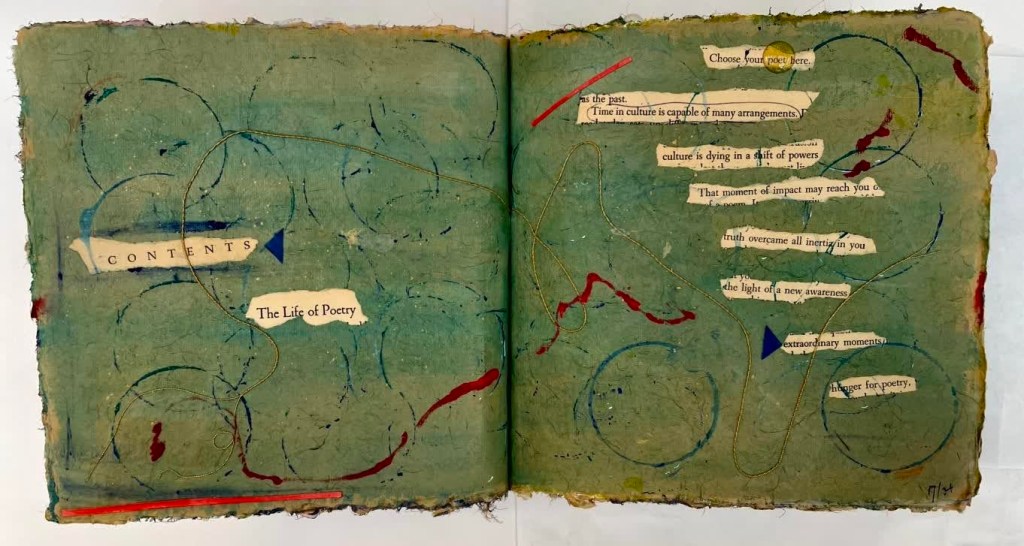 CONTENTS
The Life of Poetry
Choose your poet here.
as the past.
Time in culture is capable of many arrangements.
culture is dying in a shift of powers
That moment of impact may reach you
truth overcame all inertia in you
the light of a new awareness
extraordinary moments
hunger for poetry,